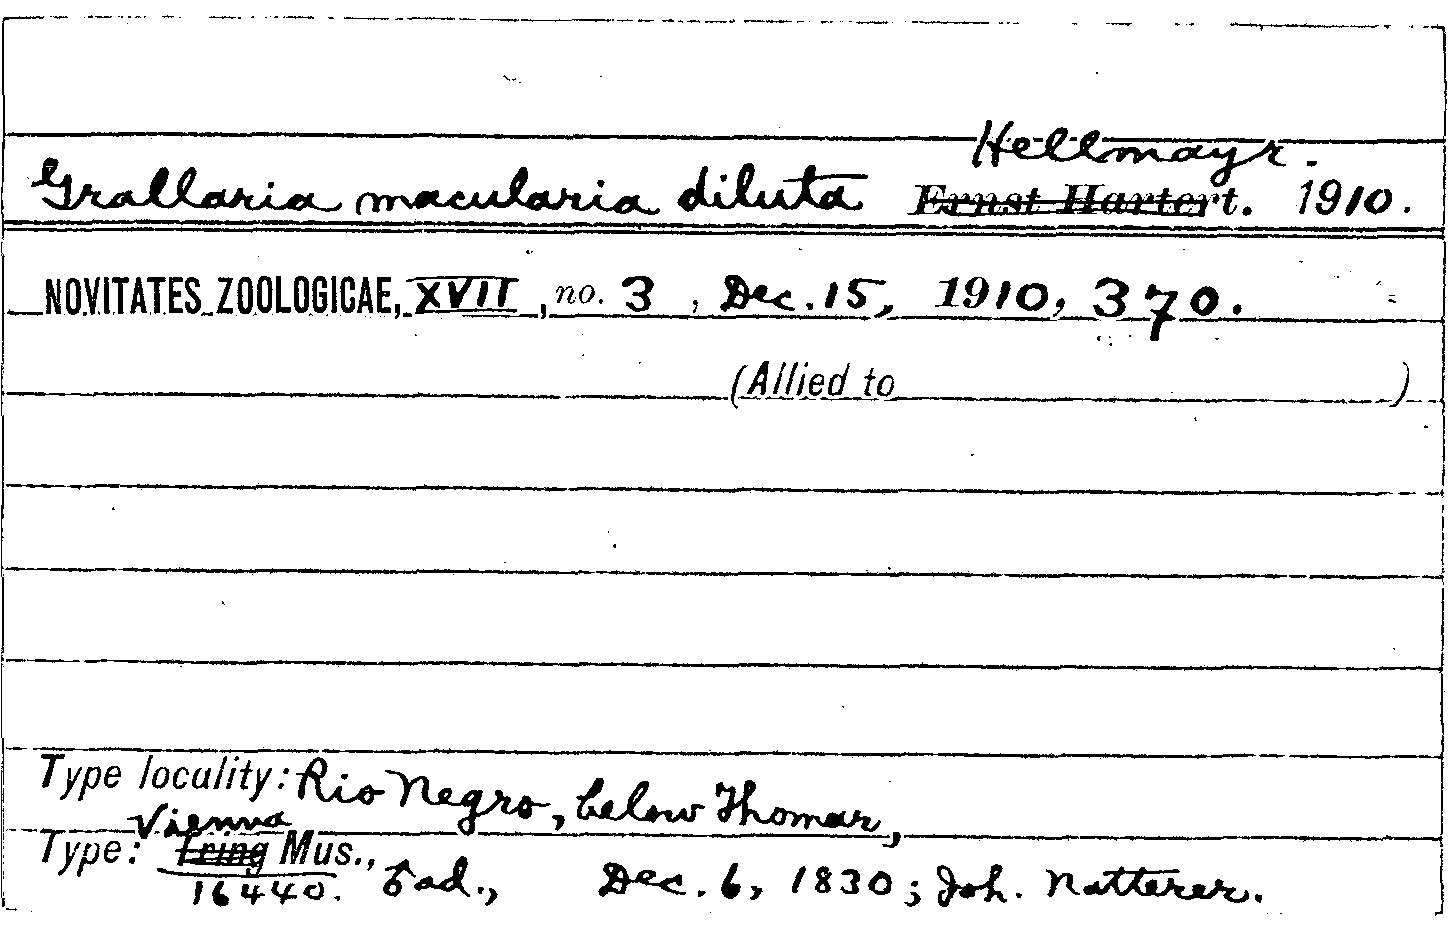 Hellmayr.
Grallaria macularia diluta Ernst Hartert. 1910.
NOVITATES ZOOLOGICAE, XVII, no. 3, Dec. 15, 1910, 370.
(Allied to )
Type locality: Rio Negro, below Thomar,
Vienna
Type: Tring Mus.,
16440. ad., Dec. 6, 1830; Joh. Natterer.